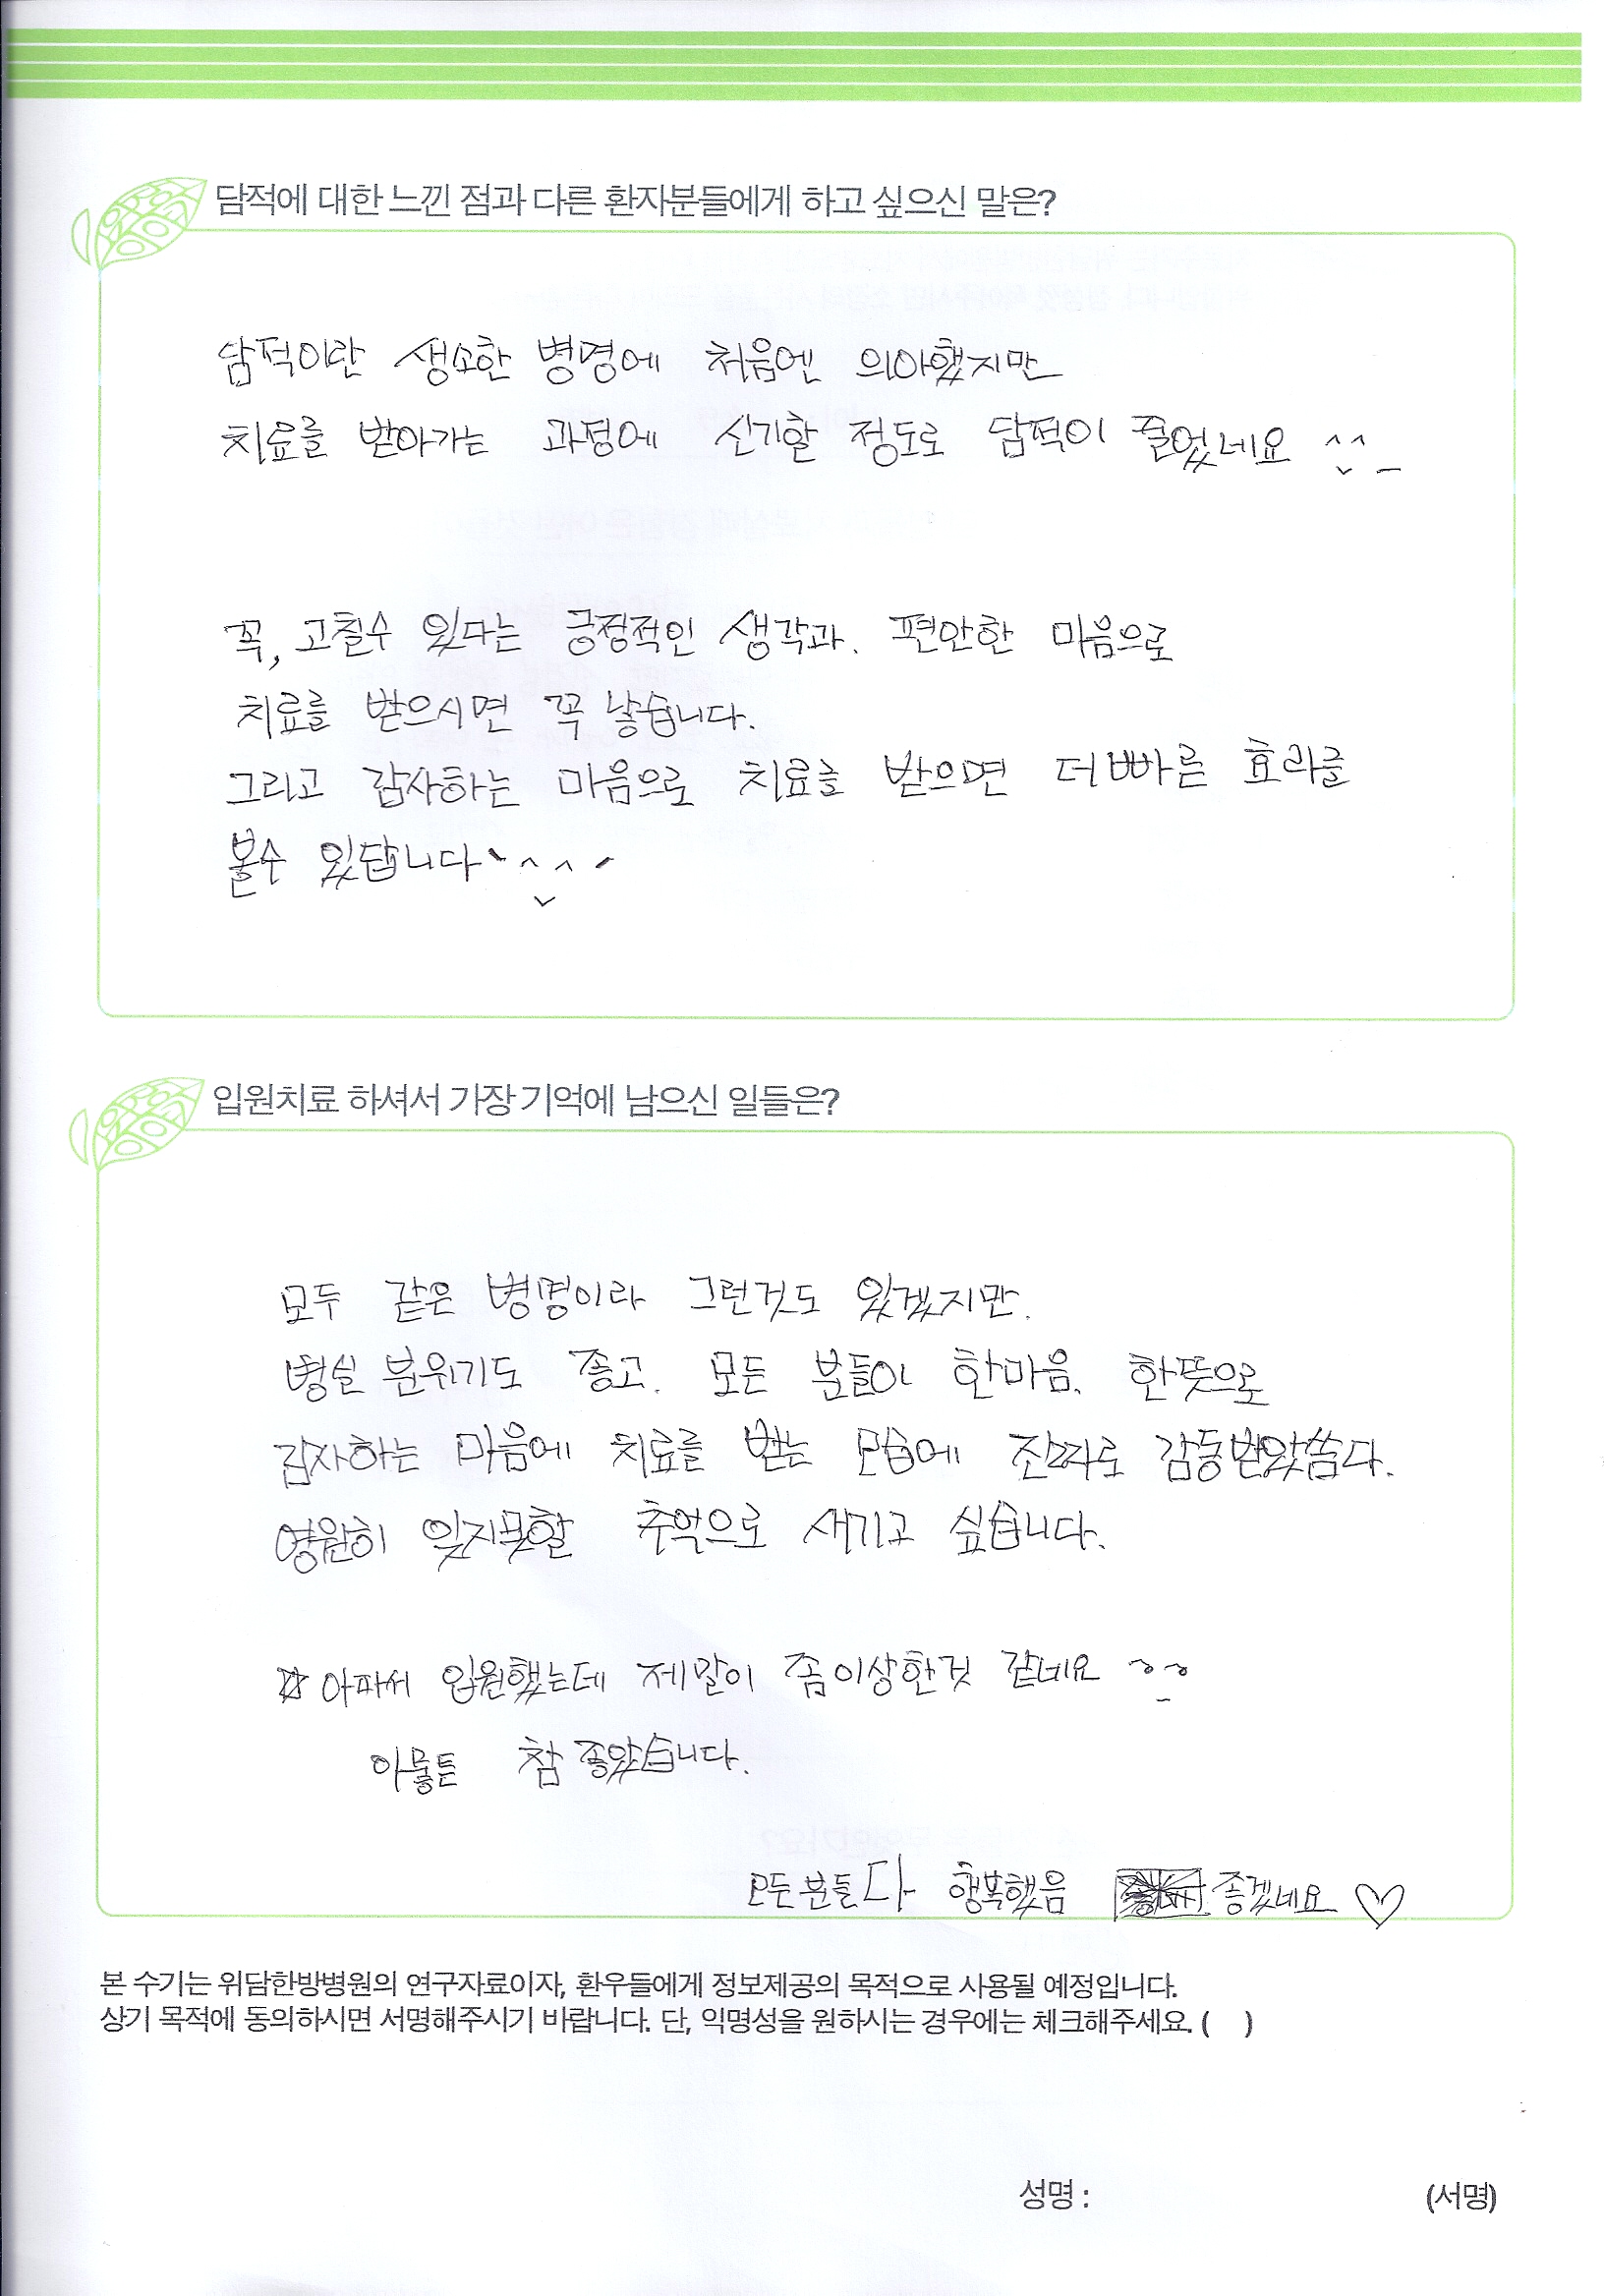 담적에 대한 느낀 점과 다른 환자분들에게 하고 싶으신 말은?
담적이란 생소한 병명에 처음엔 의아했지만
치료를 받아가는 과정에 신기할 정도로 담적이 줄었네요 ^^
꼭, 고칠수 있다는 긍정적인 생각과. 편안한 마음으로
치료를 받으시면 꼭 낳습니다.
그리고 감사하는 마음으로 치료를 받으면 더 빠른 효과를
볼수 있답니다 ^^
입원치료 하셔서 가장 기억에 남으신 일들은?
모두 같은 병명이라 그런것도 있겠지만.
병실 분위기도 좋고. 모든 분들이 한마음. 한뜻으로
감사하는 마음에 치료를 받는 모습에 진짜로 감동받았씀다.
영원히 잊지못할 추억으로 새기고 싶습니다.
☆ 아파서 입원했는데 제말이 좀 이상한것 같네요
아뭏튼 참 좋았습니다.
모든분들 다 행복했음 좋겠네요 ♡
본 수기는 위담한방병원의 연구자료이자, 환우들에게 정보제공의 목적으로 사용될 예정입니다.
상기 목적에 동의하시면 서명해주시기 바랍니다. 단, 익명성을 원하시는 경우에는 체크해주세요. ( )
성명 : (서명)